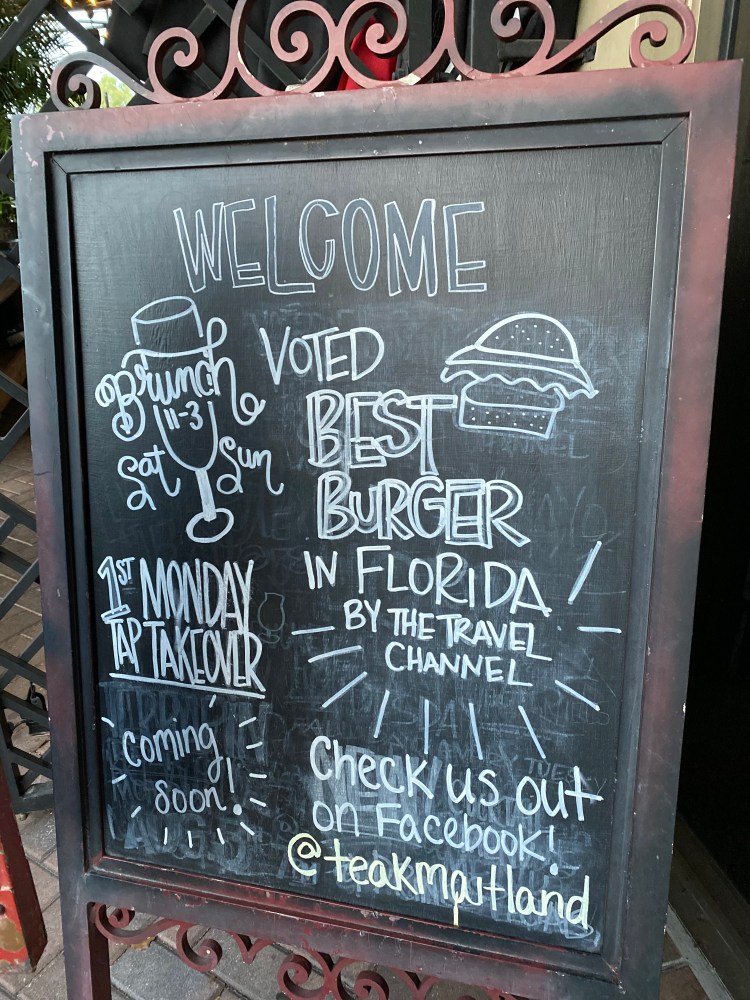 WELCOME
Brunch
11-3
Sat Sun
VOTED
BEST
BURGER
IN FLORIDA
BY THE TRAVEL
CHANNEL
1ST MONDAY
TAP TAKEOVER
coming
soon!
Check us out
on Facebook!
@teakmaitland